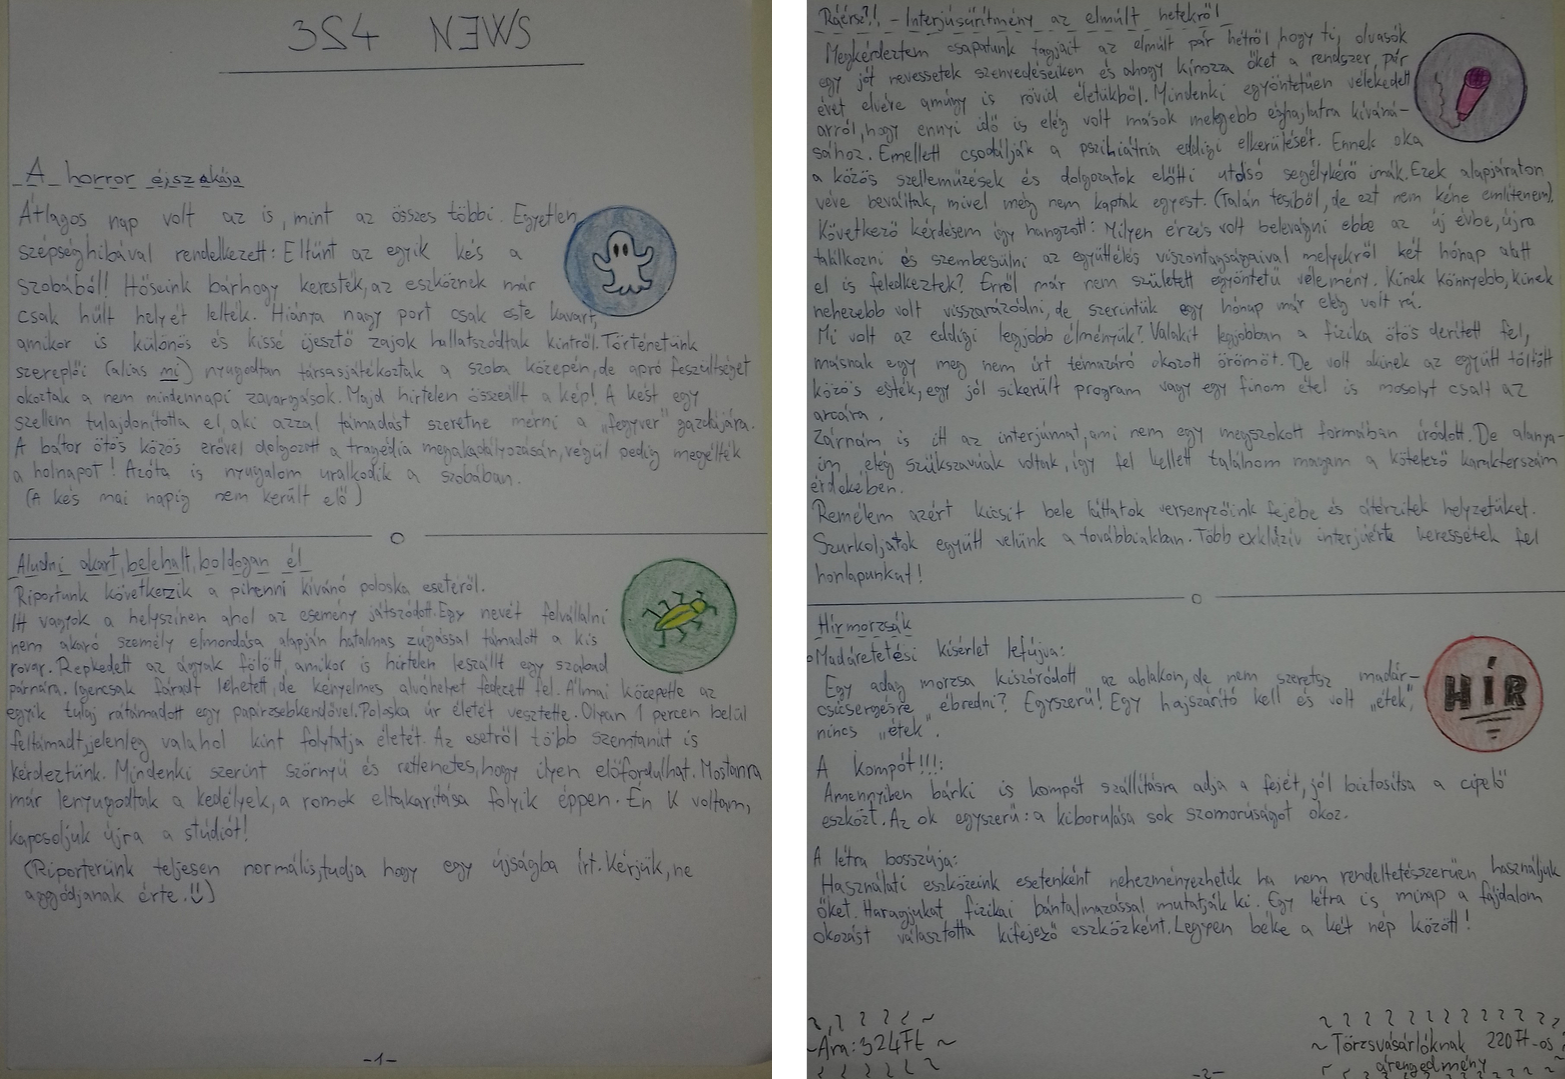 324 NEWS
A horror éjszakája
Átlagos nap volt az is, mint az összes többi. Egyetlen
szépséghibával rendelkezett: Eltűnt az egyik kés a
szobából! Hőseink bárhogy keresték, az eszköznek már
csak hűlt helyét lelték. Hiánya nagy port csak este kavart,
amikor is különös és kissé ijesztő zajok hallatszódtak kintről. Történetünk
szereplői (alias mi) nyugodtan társasjátékoztak a szoba közepén, de apró feszültséget
okoztak a nem mindennapi zavargások. Majd hirtelen összeállt a kép! A kést egy
szellem tulajdonította el, aki azzal támadást szeretne mérni a „fegyver" gazdájára.
A bátor ötös közös erővel dolgozott a tragédia megakadályozásán, végül pedig megélték
a holnapot! Azóta is nyugalom uralkodik a szobában.
(A kés mai napig nem került elő)
Aludni akart, belehalt, boldogan él
Riportunk következik a pihenni kívánó poloska esetéről.
Itt vagyok a helyszínen ahol az esemény játszódott. Egy nevét felvállalni
nem akaró személy elmondása alapján hatalmas zúgással támadott a kis
rovar. Repkedett az ágyak fölött, amikor is hirtelen leszállt egy szabad
párnára. Igencsak fáradt lehetett, de kényelmes alvóhelyet fedezett fel. Álmai közepette az
egyik tulaj rátámadott egy papírzsebkendővel. Poloska úr életét vesztette. Olyan 1 percen belül
feltámadt, jelenleg valahol kint folytatja életét. Az esetről több szemtanút is
kérdeztünk. Mindenki szerint szörnyű és rettenetes, hogy ilyen előfordulhat. Mostanra
már lenyugodtak a kedélyek, a romok eltakarítása folyik éppen. Én K voltam,
kapcsoljuk újra a stúdiót!
(Riporterünk teljesen normális, tudja hogy egy újságba írt. Kérjük, ne
aggódjanak érte. Ü)
-1-
Ráérsz?!! - Interjúsűrítmény az elmúlt hetekről
Megkérdeztem csapatunk tagjait az elmúlt pár hétről hogy ti, olvasók
egy jót nevessetek szenvedéseiken és ahogy kínozza őket a rendszer, pár
évet elvéve amúgy is rövid életükből. Mindenki egyöntetűen vélekedett
arról, hogy ennyi idő is elég volt mások melegebb éghajlatra kíváná-
sához. Emellett csodálják a pszihiátria eddigi elkerülését. Ennek oka
a közös szelleműzések és dolgozatok előtti utolsó segélykérő imák. Ezek alapjáraton
véve beváltak, mivel még nem kaptak egyest. (Talán tesiből, de ezt nem kéne említenem).
Következő kérdésem így hangzott: Milyen érzés volt belevágni ebbe az új évbe, újra
találkozni és szembesülni az együttélés viszontagságaival melyekről két hónap alatt
el is feledkeztek? Erről már nem született egyöntetű vélemény. Kinek könnyebb, kinek
nehezebb volt visszarázódni, de szerintük egy hónap már elég volt rá.
Mi volt az eddigi legjobb élményük? Valakit legjobban a fizika ötös derített fel,
másnak egy meg nem írt témazáró okozott örömöt. De volt akinek az együtt töltött
közös esték, egy jól sikerült program vagy egy finom étel is mosolyt csalt az
arcára.
Zárnám is itt az interjúmat, ami nem egy megszokott formában íródott. De alanya-
im elég szűkszavúak voltak, így fel kellett találnom magam a kötelező karakterszám
érdekében.
Remélem azért kicsit bele láttatok versenyzőink fejébe és átérzitek helyzetüket.
Szurkoljatok együtt velünk a továbbiakban. Több exklúzív interjúért keressétek fel
honlapunkat!
Hírmorzsák
Madáretetési kísérlet lefújva:
Egy adag morzsa kiszóródott az ablakon, de nem szeretsz madár-
csicsergésre ébredni? Egyszerű! Egy hajszárító kell és volt „étek",
nincs „étek".
HÍR
A kompót!!!:
Amennyiben bárki is kompót szállításra adja a fejét, jól biztosítsa a cipelő
eszközt. Az ok egyszerű: a kiborulása sok szomorúságot okoz.
A létra bosszúja:
Használati eszközeink esetenként nehezményezhetik ha nem rendeltetésszerűen használjuk
őket. Haragjukat fizikai bántalmazással mutatják ki. Egy létra is minap a fájdalom
okozást választotta kifejező eszközként. Legyen béke a két nép között!
~Ára: 324Ft~
~Törzsvásárlóknak 220Ft-os
árengedmény
-2-